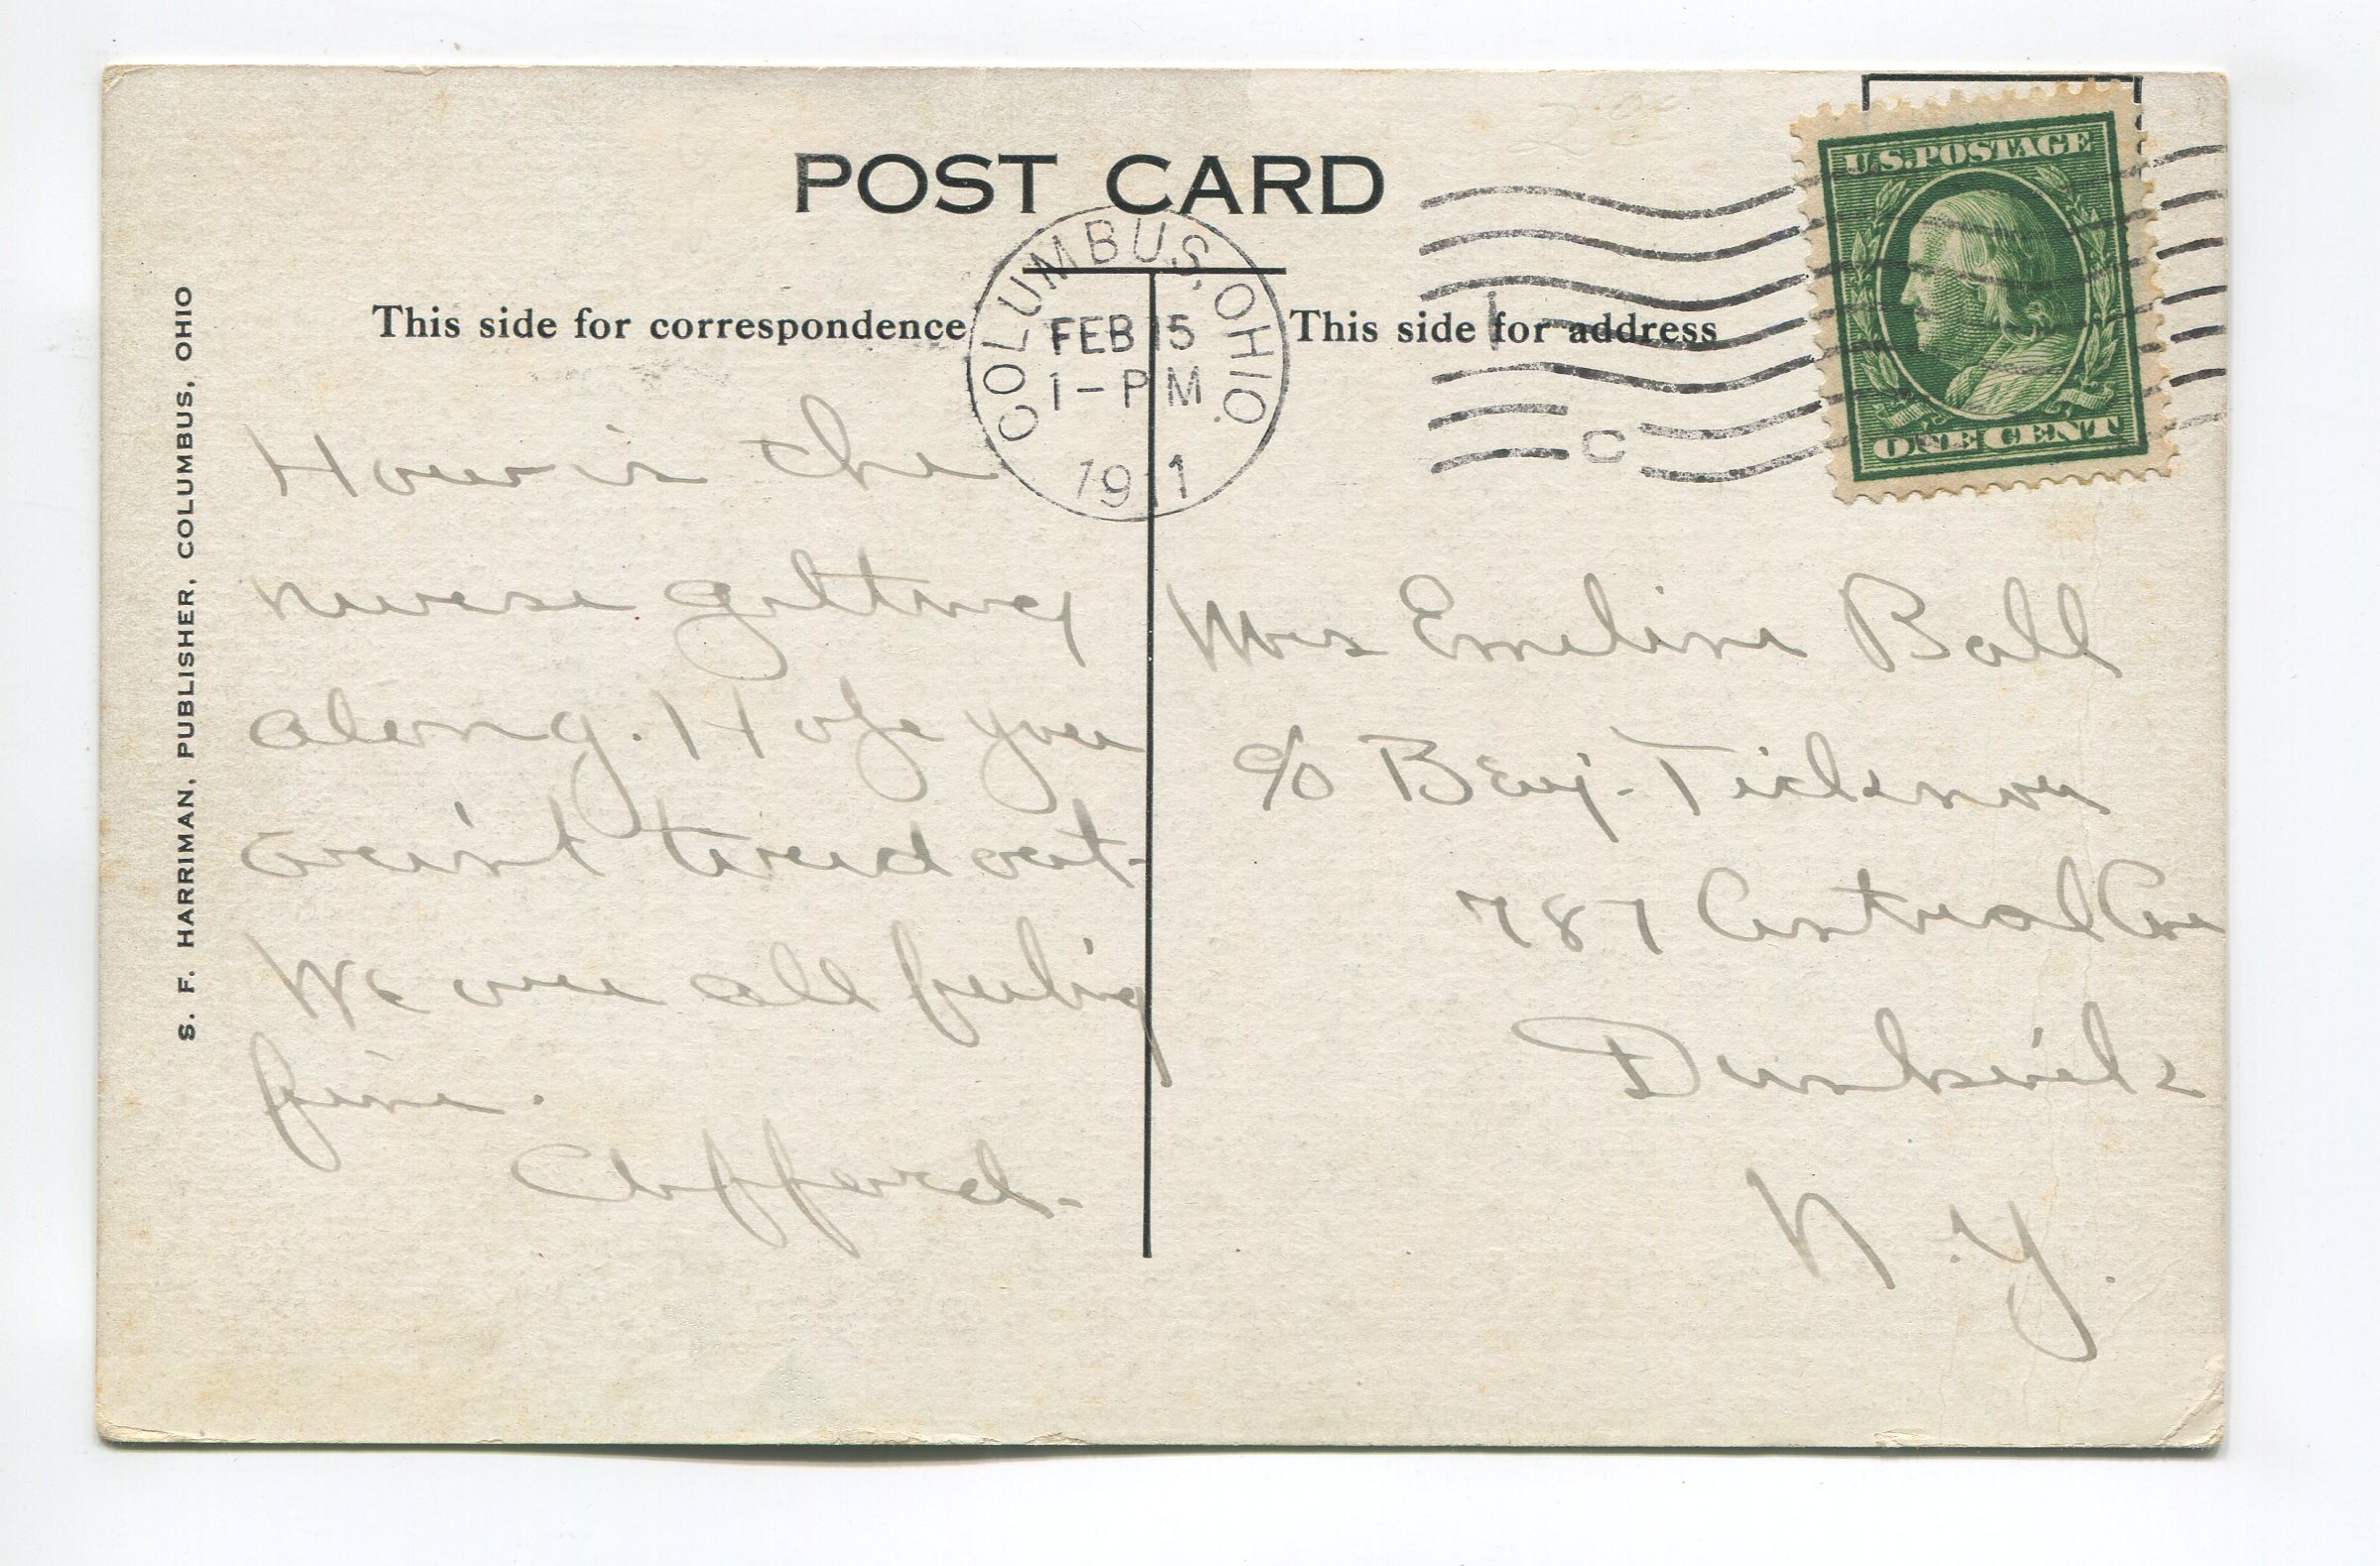 POST CARD
This side for correspondence
This side for address
COLUMBUS, OHIO.
FEB 15
1-PM
1911
C
U.S. POSTAGE
ONE CENT
S. F. HARRIMAN, PUBLISHER, COLUMBUS, OHIO
How is the
nurse getting
along. Hope you
are'nt tired out-
We are all feeling
fine.
Clifford.
Mrs Emeline Ball
c/o Benj.
787 Central Ave
Dunkirk
N.Y.